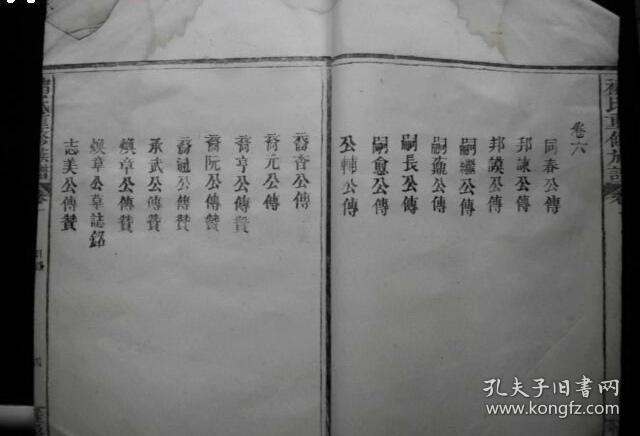 卷六
同春公傳
邦諫公傳
邦謨公傳
嗣繼公傳
嗣蘊公傳
嗣長公傳
嗣愈公傳
公輔公傳
裔杳公傳
裔元公傳
裔亨公傳贊
裔阮公傳贊
裔通公傳贊
承武公傳贊
煥章公傳贊
煥章公墓誌銘
志美公傳贊
氏重修族譜
孔夫子旧书网
www.kongfz.com